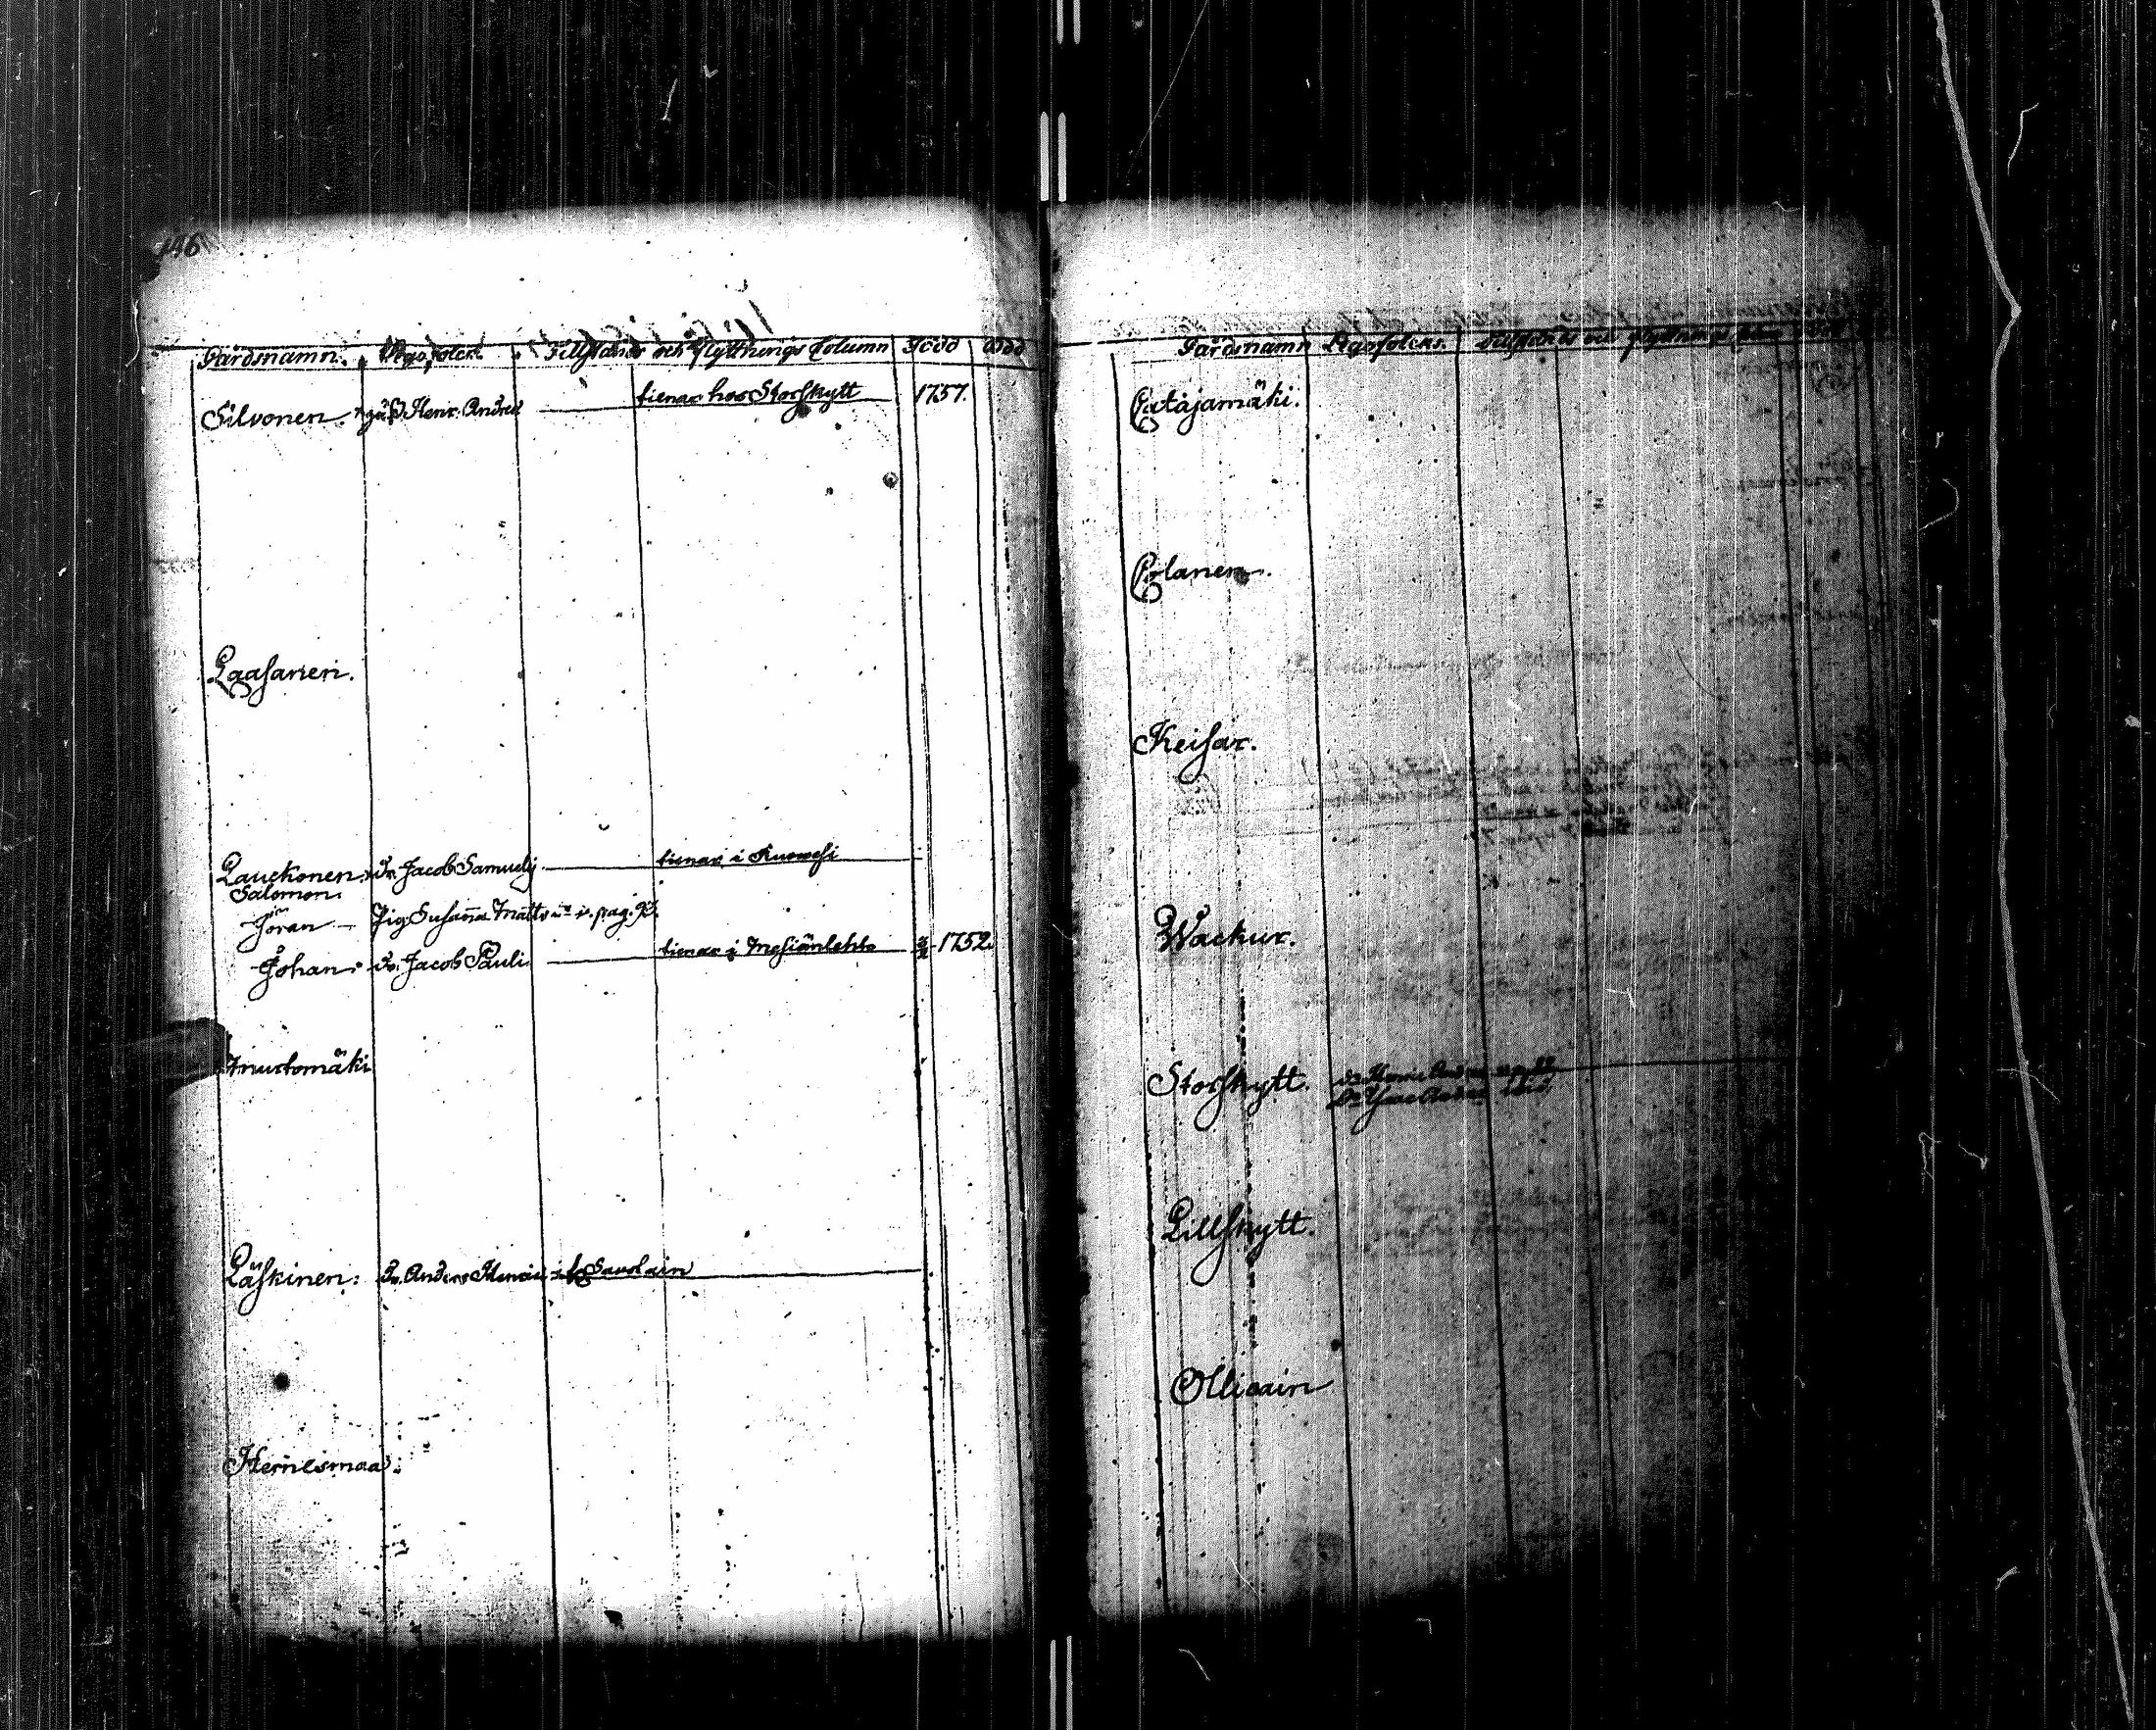 146
Gårdsnamn. Lego folck. Tillstånds och flyttnings Column Född Död
Silvonen. Henr. Andrs tienar hos Storskytt 1757.
Laasanen.
Lauckonen. Dr. Jacob Samuelj tienar i Ruowesi
Salomon.
Jöran Pig. Susanna Matts dr v. pag. 93.
Johan. Dr. Jacob Pauli tienar i 1752.
Mustomäki
Läskinen: Dr. Anders Henrici Savolain
Hernesmaa.
Gårdsnamn Legofolcks. Tillstånds och flyttnings
Catajamäki.
Colanen.
Keisar.
Wackur.
Storskytt.
Lillskytt.
Ollicain